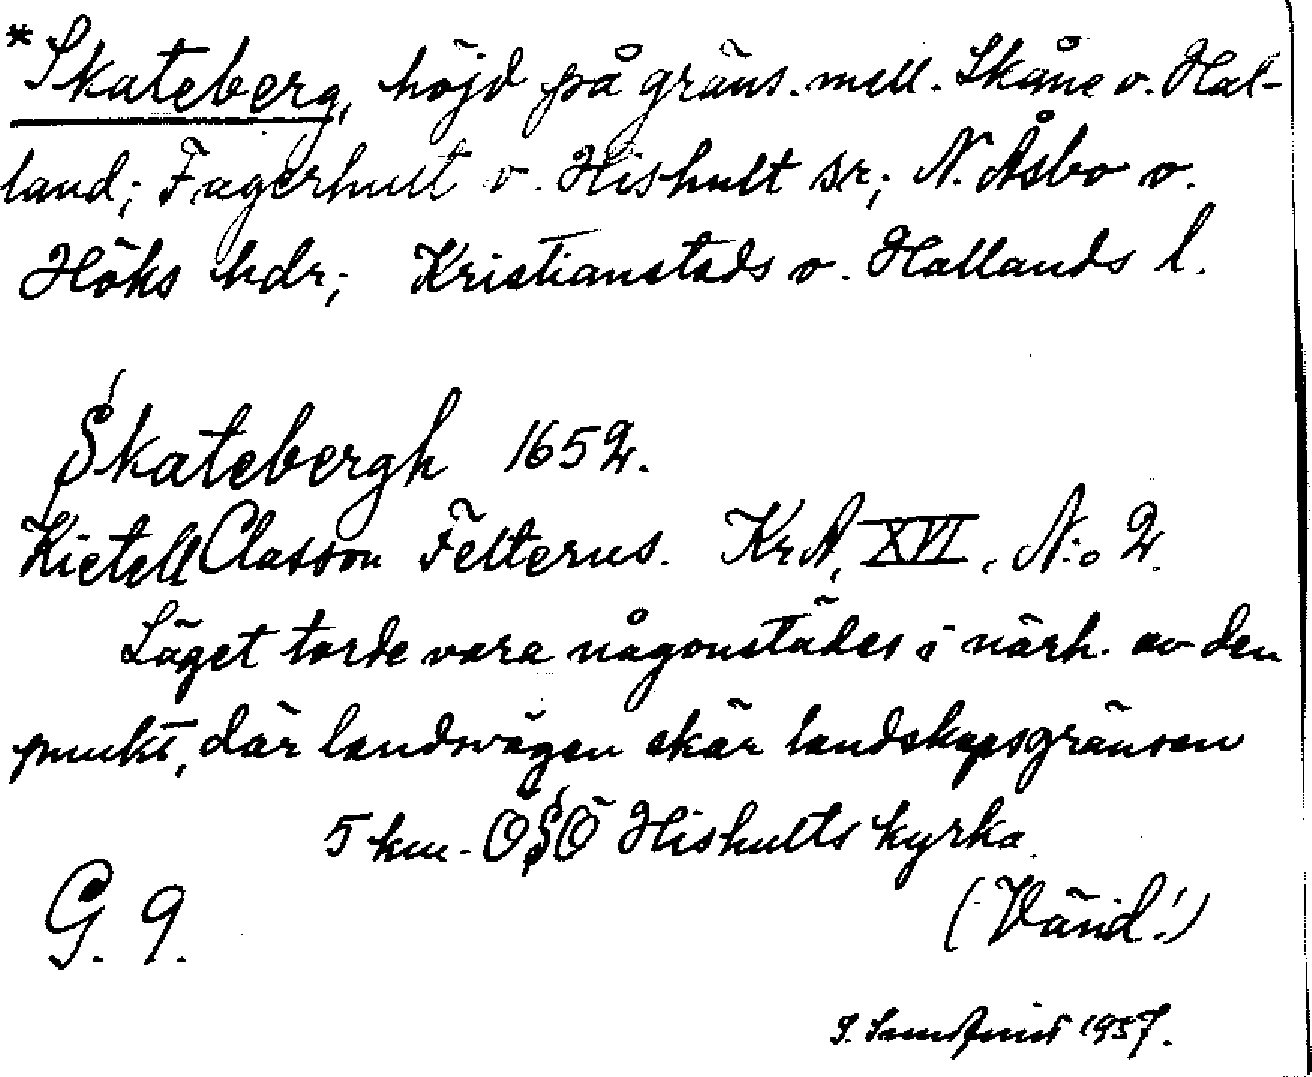 *Skateberg, höjd på gräns. mell. Skåne o. Hal-
land; Fagerhult o. Hishult sr; N. Åsbo o.
Höks hdr; Kristianstads o. Hallands l.
Skatebergh 1652.
Kietell Classon Felterus. KrA, XVI, N:o 2.
Läget torde vara någonstädes i närh. av den
punkt, där landsvägen skär landskapsgränsen
5 km. ÖSÖ Hishults kyrka.
G. 9.
(Vänd!)
1957.